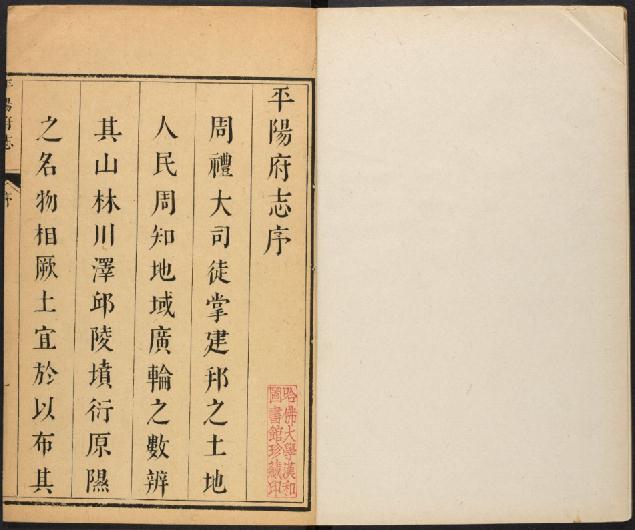 平陽府志序
周禮大司徒掌建邦之土地
人民周知地域廣輪之數辨
其山林川澤邱陵墳衍原隰
之名物相厥土宜於以布其
平陽府志
序
哈佛大學漢和
圖書館珍藏印